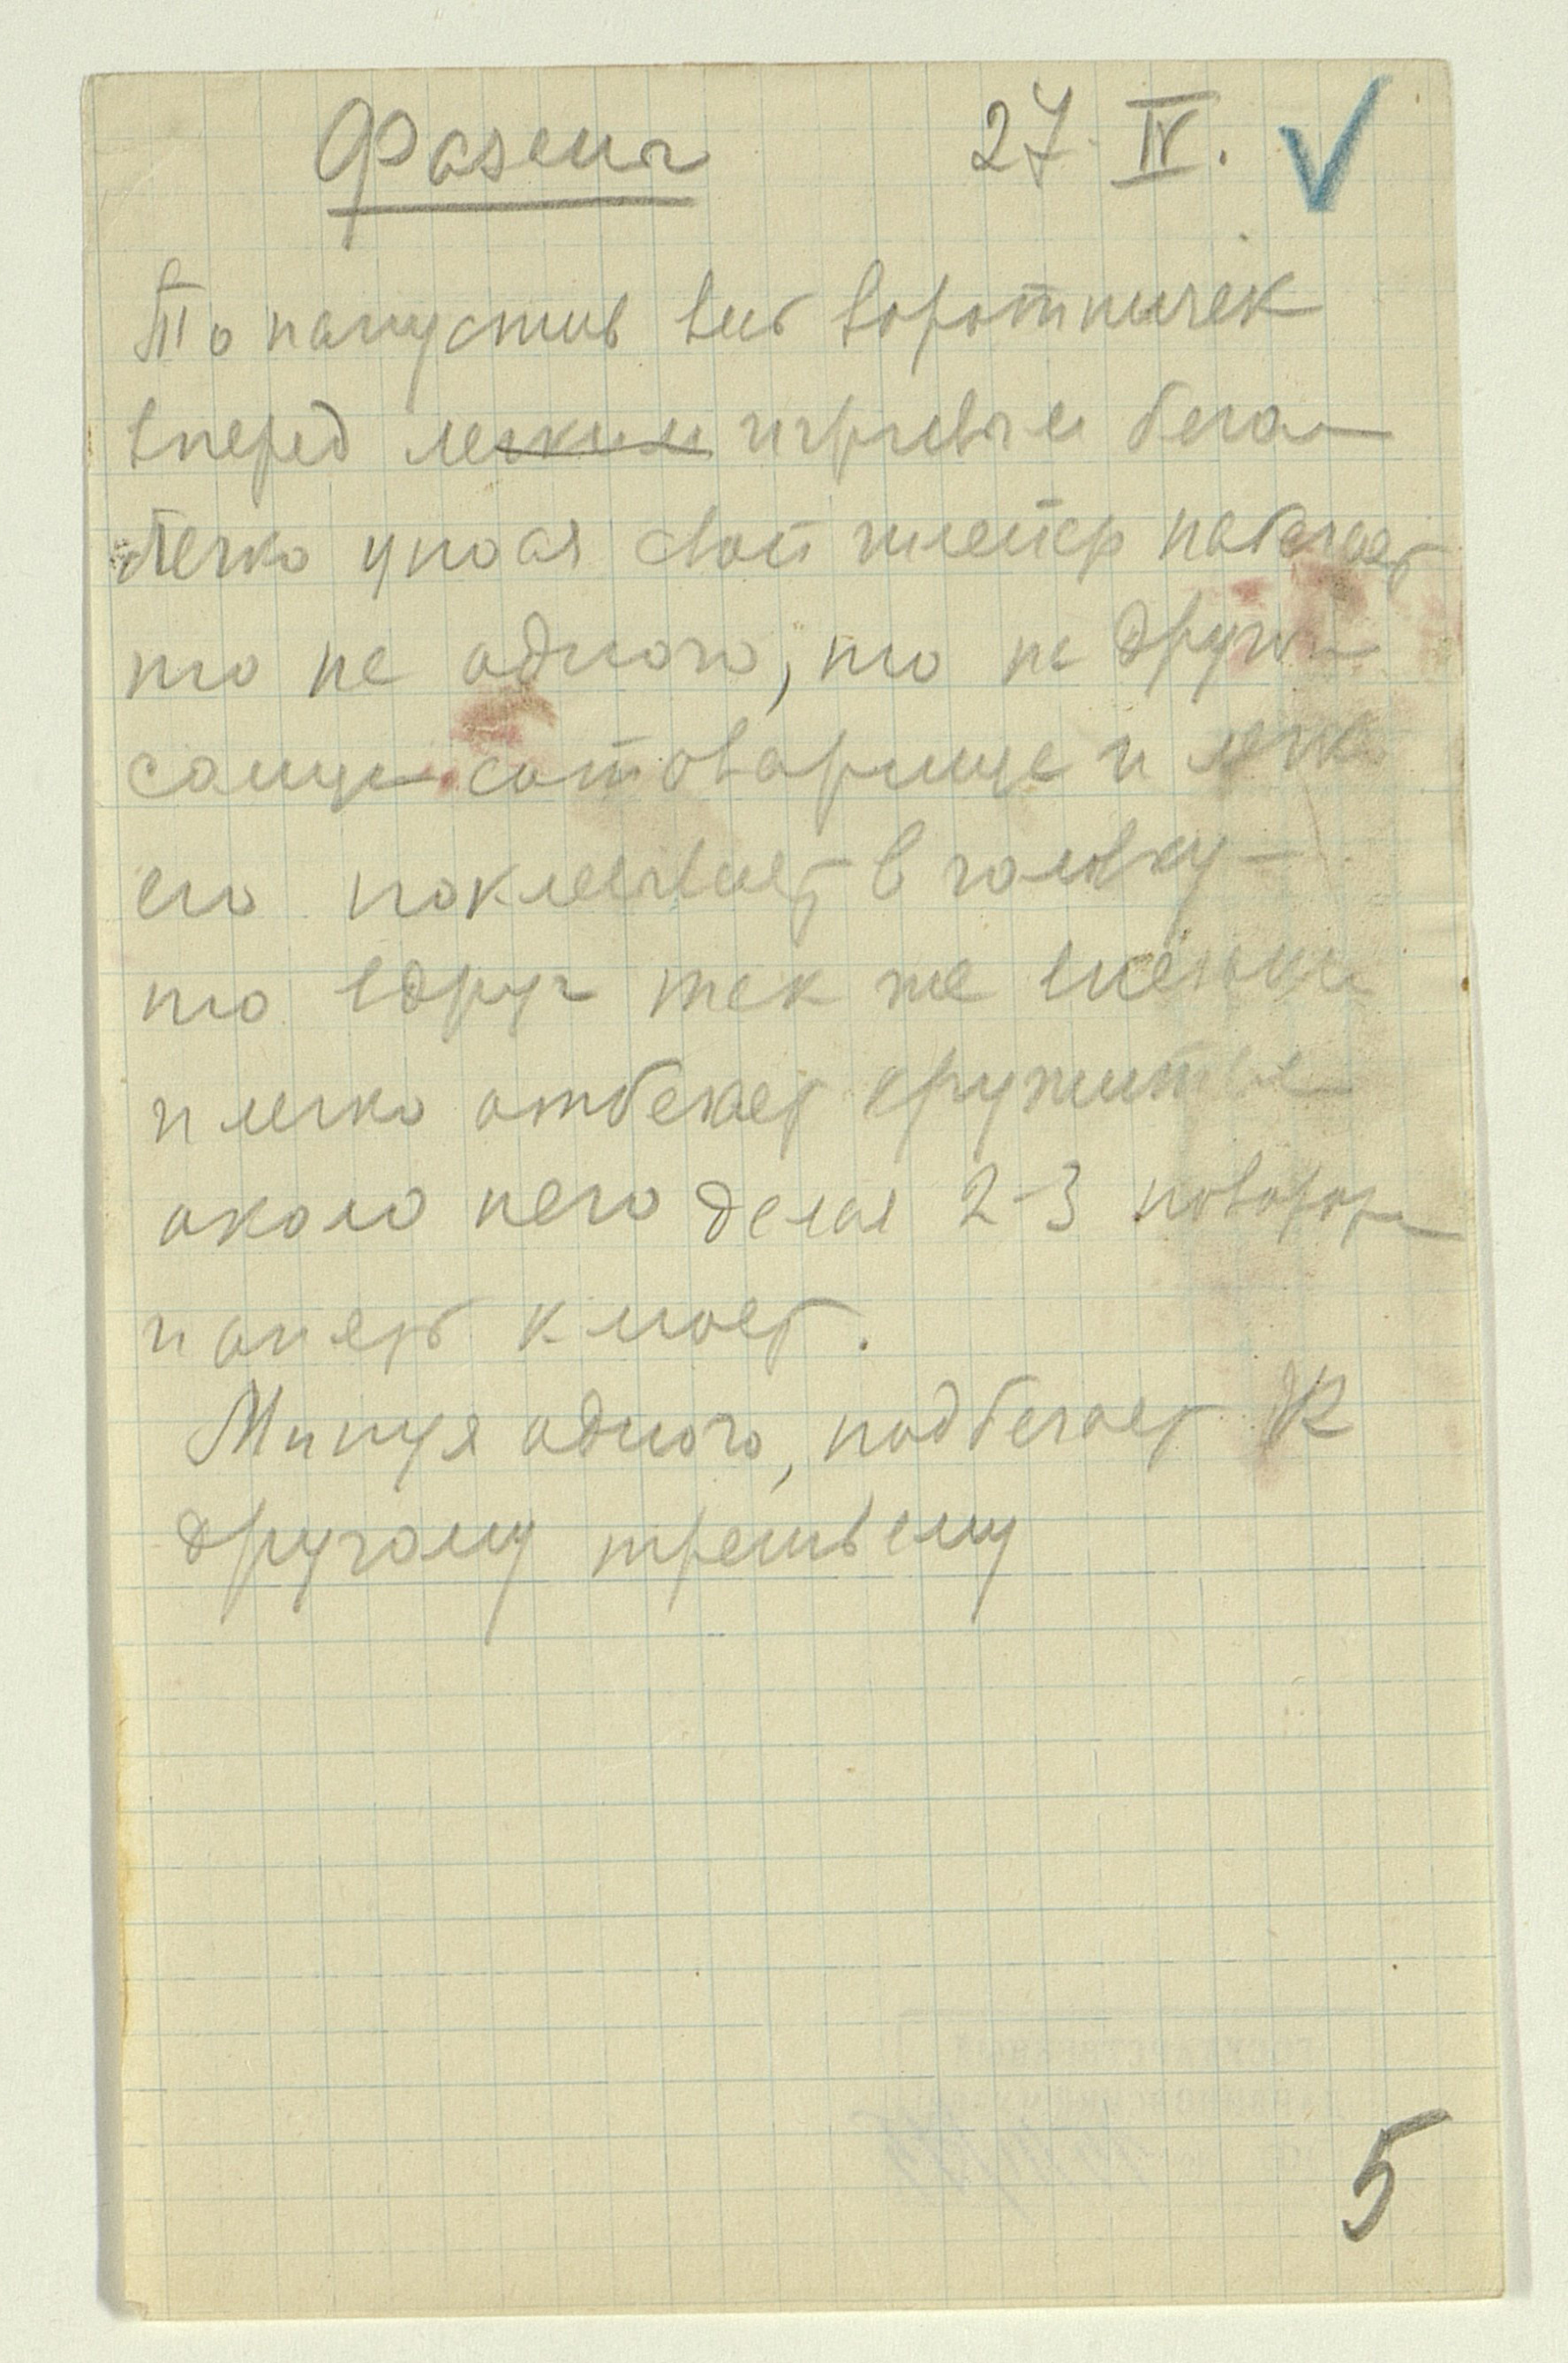 Фазан 27. IV.
То напустив весь воротничек
вперед легким игривым бегом
легко неся свой шлейф набегает
то на одного, то на другого
самца сотоварища и легко
его поклевывает в головку —
то вдруг так же
и легко отбегает кружиться
около него делая 2-3 поворота
и опять клюет.
Минуя одного, подбегает к
другому третьему
5